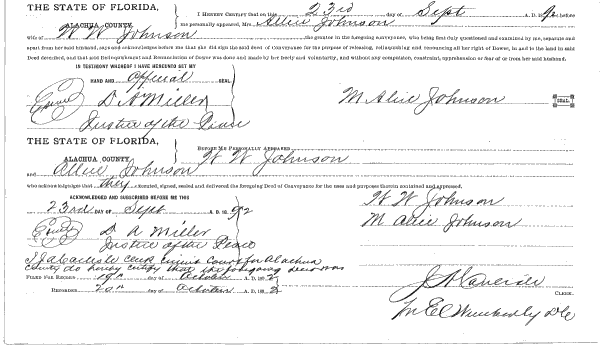 THE STATE OF FLORIDA,
ALACHUA COUNTY.
I HEREBY CERTIFY that on this 23rd day of Sept A. D. 1892 before
me personally appeared, Mrs Allice Johnson
wife of W W Johnson the grantor in the foregoing conveyance, who being first duly questioned and examined by me, separate and
apart from her said husband, says and acknowledges before me that she did sign the said deed of Conveyance for the purpose of releasing, relinquishing and renouncing all her right of Dower, in and to the land in said
Deed described, and that said Relinquishment and Renunciation of Dower was done and made by her freely and voluntarily, and without any compulsion, constraint, apprehension or fear of or from her said husband.
IN TESTIMONY WHEREOF I HAVE HEREUNTO SET MY
HAND AND official SEAL
D A Miller
Justice of the Peace
M Alice Johnson SEAL
THE STATE OF FLORIDA,
ALACHUA COUNTY
BEFORE ME PERSONALLY APPEARED W W Johnson
and Allice Johnson
who acknowledges that they executed, signed, sealed and delivered the foregoing Deed of Conveyance for the uses and purposes therein contained and expressed.
ACKNOWLEDGED AND SUBSCRIBED BEFORE ME THIS
23rd DAY OF Sept A. D. 1892
D A Miller
Justice of the Peace
W W Johnson
M Alice Johnson
Clerk Circuit Court for Alachua
County do hereby certify that the foregoing deed was
FILED FOR RECORD day of October A. D. 1892
RECORDED day of October A. D. 1892
CLERK.